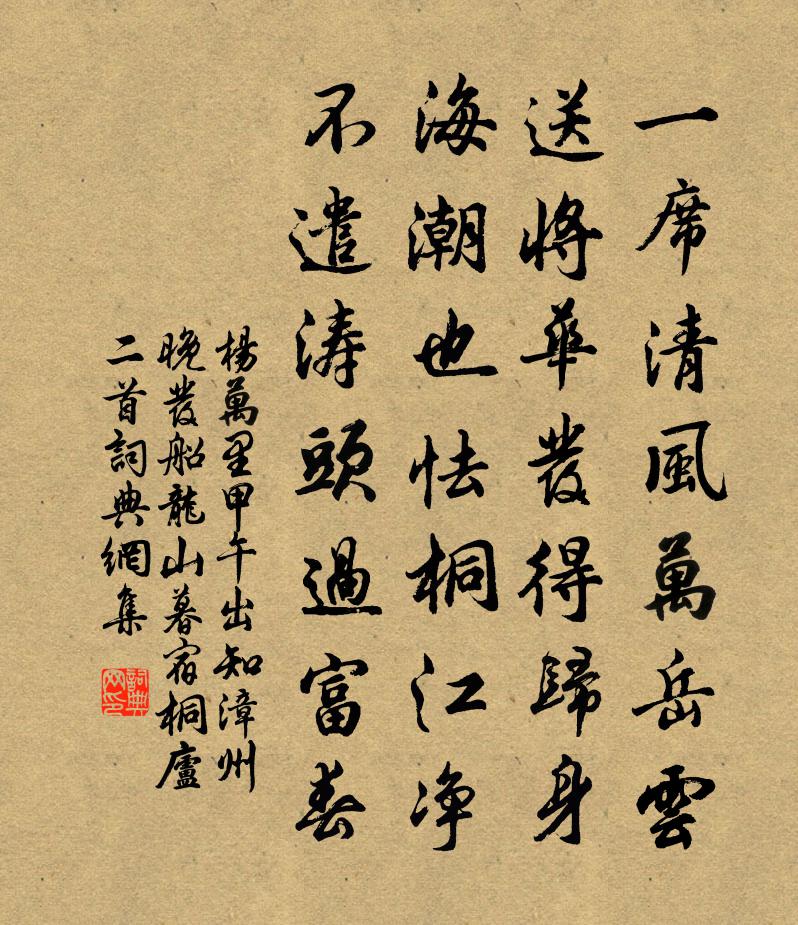 一席清風萬岳雲
送將華發得歸身
海潮也怯桐江净
不遣涛頭過富春
楊萬里甲午出知漳州
晚發船龍山暮宿桐廬
二首詞典網集
詞典
网印